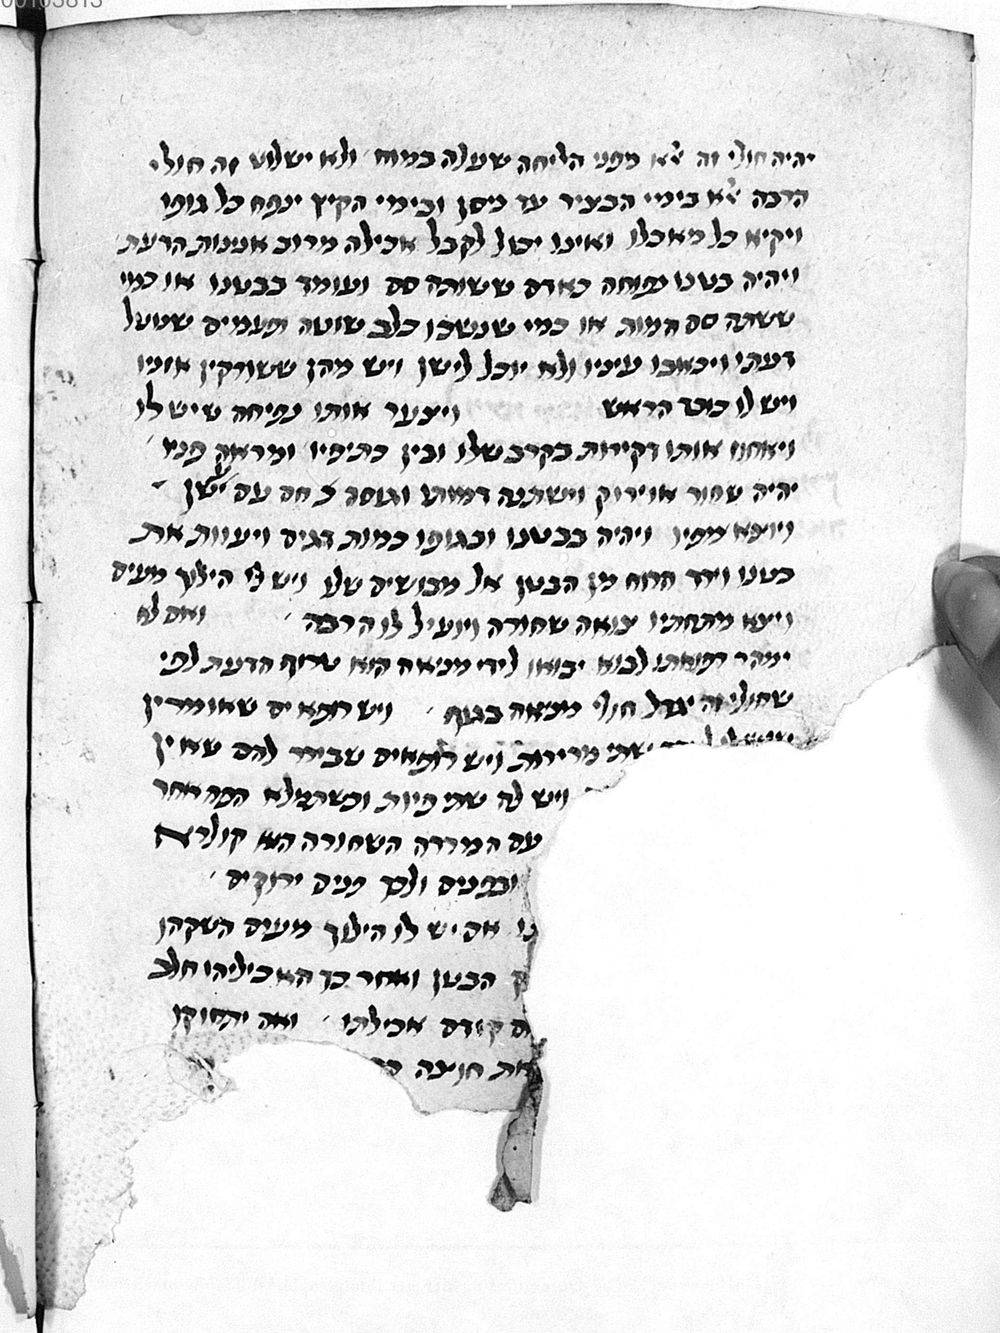 יהיה חולי זה אלא מפני הליחה שעלה במוח ולא ישלוט זה חולי
הרבה אלא בימי הבציר עד ניסן ובימי הקיץ ינפח כל גופו
ויקיא כל מאכלו ואינו יכול לקבל אכילה מרוב אננות הדעת
ויהיה בטנו נפוחה כאדם ששותה סם ועומד בבטנו או כמי
ששתה סם המות או כמי שנשכו כלב שוטה פעמים שנוטל
דעתו ויכאבו עיניו ולא יוכל לישן ויש מהן ששורקין אזניו
ויש לו כובד הראש ויצער אותו נפיחה שיש לו
ויאחזו אותו דקירות בקרב שלו ובין כתיפיו ומראה פניו
יהיה שחור או ירוק וישתנה דמותו וגופו חם עם ישן
ויוצא מפיו ויהיה בבטנו ובגופו כמות דגים ויעוות את
בטנו וירד הרוח מן הבטן אל מבושים שלו ויש לו הילוך מעים
ויצא מתחתיו צואה שחורה ויועיל לו הרבה ואם לא
ימהר רפואתו לבוא יבואו לידי מניאה הוא טרוף הדעת לפי
שחולי זה יגדל חולי מניאה בגוף ויש רופאים שאומרין
שתי מרירות ויש רופאים שבירר להם שאין
ויש לה שתי פיות וכשתמלא הפה אחר
עם המררה השחורה הוא קולרא
ובפנים ולכך פנים ירוקים
אם יש לו הילוך מעים השקהו
הבטן ואחר כך האכיליהו חלב
קודם אכילתו ואז יתחזקו
חוצה